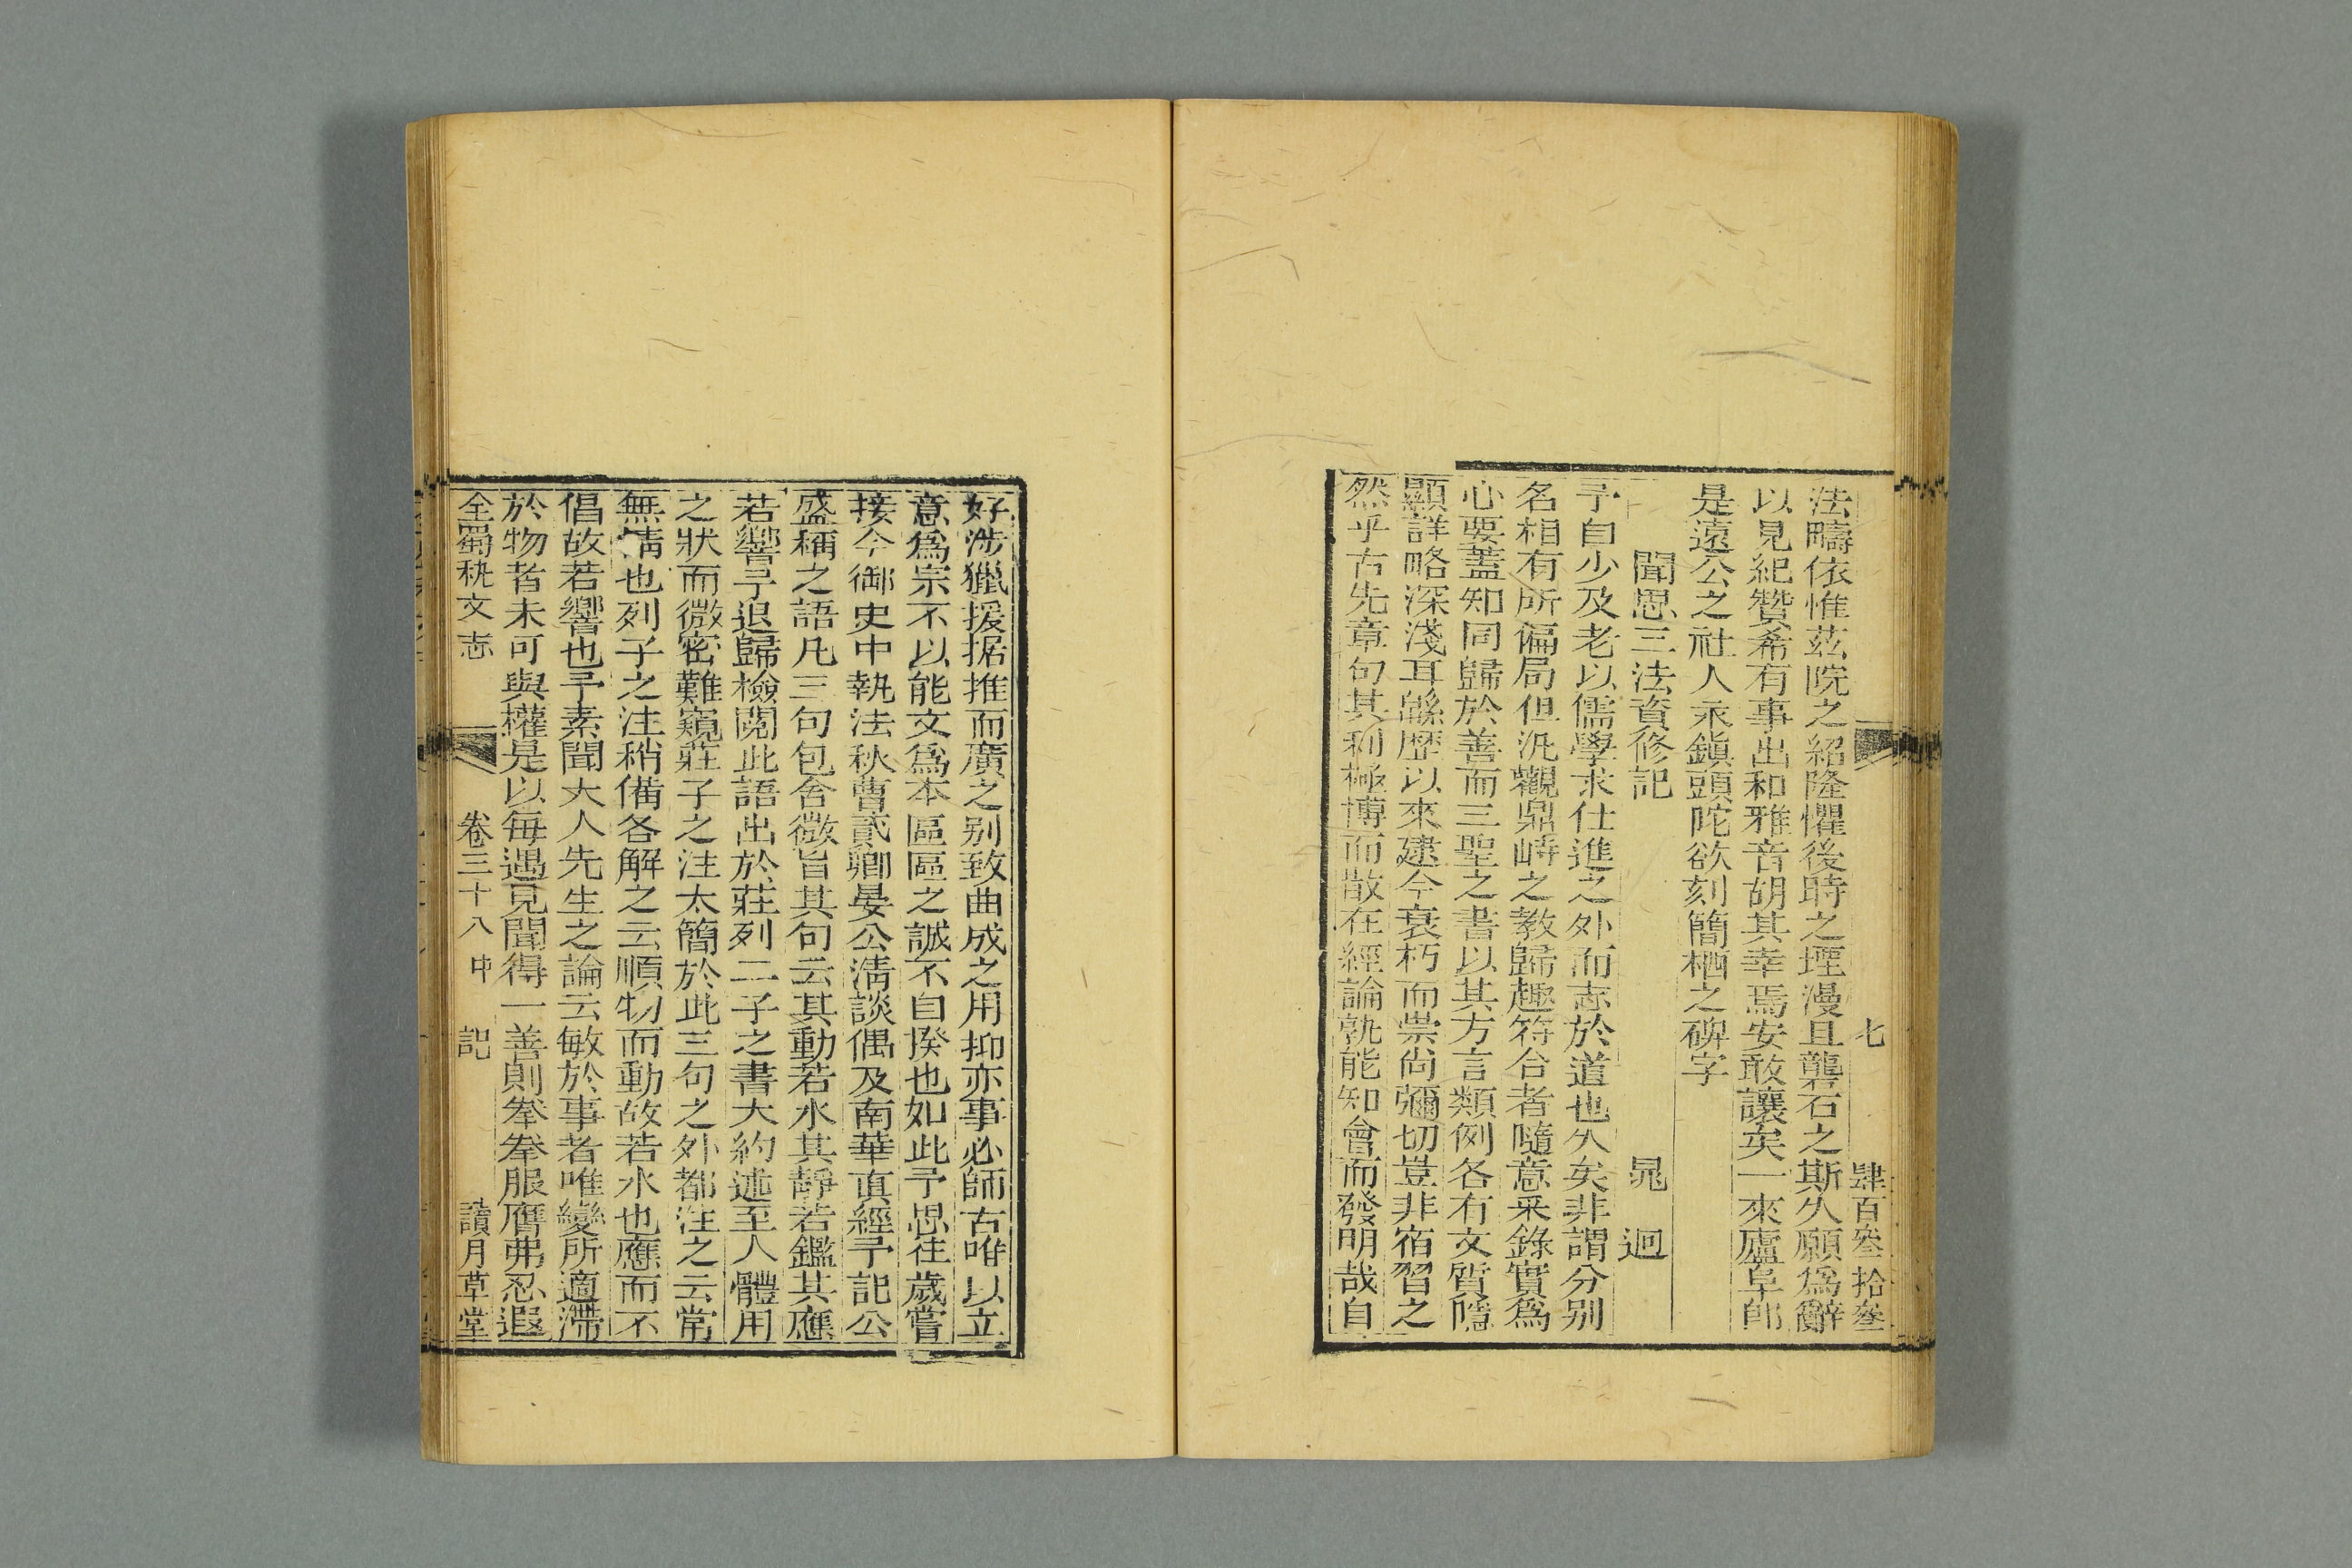 七　肆百叁拾叁
法疇依惟茲院之紹隆懼後時之堙漫且礱石之斯久願爲辭
以見紀贊希有事出和雅音胡其幸焉安敢讓矣一來廬阜郎
是遠公之社人永鎭頭陀欲刻簡栖之碑字
聞思三法資修記　晁迥
予自少及老以儒學求仕進之外而志於道也久矣非謂分别
名相有所偏局但汎觀鼎峙之教歸趣符合者隨意采錄實爲
心要蓋知同歸於善而三聖之書以其方言類例各有文質隱
顯詳略深淺耳緜歷以來逮今衰朽而崇尚彌切豈非宿習之
然乎古先章句其利極博而散在經論孰能知會而發明哉自
好涉獵援据推而廣之别致曲成之用抑亦事必師古唯以立
意爲宗不以能文爲本區區之誠不自揆也如此予思往歲嘗
接今御史中執法秋曹貳卿晏公淸談偶及南華眞經予記公
盛稱之語凡三句包含微旨其句云其動若水其靜若鑑其應
若響予退歸檢閱此語出於莊列二子之書大約述至人體用
之狀而微密難窺莊子之注太簡於此三句之外都注之云常
無情也列子之注稍備各解之云順物而動故若水也應而不
倡故若響也予素聞大人先生之論云敏於事者唯變所適滯
於物者未可與權是以每遇見聞得一善則拳拳服膺弗忍遐
全蜀秇文志　卷三十八中　記　讀月草堂